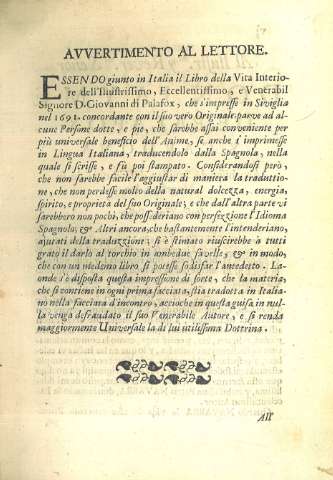 AVVERTIMENTO AL LETTORE.
ESSENDO giunto in Italia il Libro della Vita Interio-
re dell'Illustrissimo, Eccellentissimo, e Venerabil
Signore D. Giovanni di Palafox, che s'impresse in Siviglia
nel 1691. concordante con il suo vero Originale parve ad al-
cune Persone dotte, e pie, che sarebbe assai conveniente per
più universale beneficio dell'Anime, se anche s'imprimesse
in Lingua Italiana, traducendolo dalla Spagnola, nella
quale si scrisse, e si fù poi stampato. Considerandosi però,
che non sarebbe facile l'aggiustar di maniera la traduttio-
ne, che non perdesse molto della natural dolcezza, energia,
spirito, e proprieta del suo Originale; e che dall'altra parte vi
sarebbero non pochi, che possederiano con perfezzione l'Idioma
Spagnolo; & Altri ancora, che bastantemente l'intenderiano,
ajutati della traduzzione; si è stimato riuscirebbe à tutti
grato il darlo al torchio in ambedue favelle, & in modo,
che con un medemo libro si potesse sodisfar l'anedetto. La-
onde s'è disposta questa impressione di sorte, che la materia,
che si contiene in ogni prima facciata, stia tradotta in Italia-
no nella facciata d'incontro, accioche in questa guisa in nul-
la venga defraudato il suo Venerabile Autore, e si renda
maggiormente Universale la di lui utilissima Dottrina.
All'